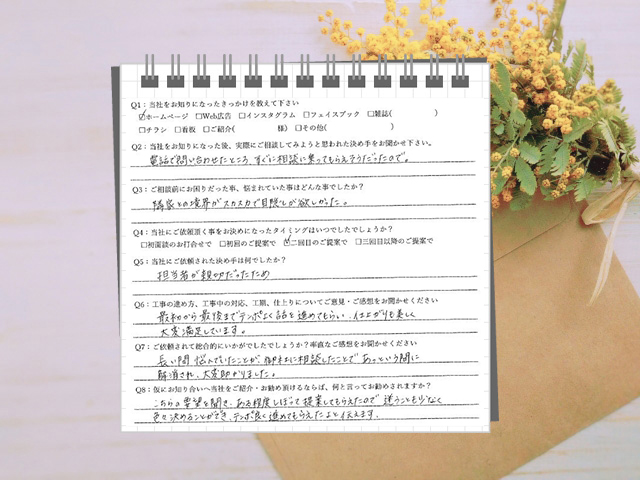 Q1：当社をお知りになったきっかけを教えて下さい
☑ホームページ　□Web広告　□インスタグラム　□フェイスブック　□雑誌(　　　　　)
□チラシ　□看板　□ご紹介(　　　　　様)　□その他(　　　　　　　)
Q2：当社をお知りになった後、実際にご相談してみようと思われた決め手をお聞かせ下さい。
電話で問い合わせたところ、すぐに相談に乗ってもらえそうだったので。
Q3：ご相談前にお困りだった事、悩まれていた事はどんな事でしたか？
隣家との境界がスカスカで目隠しが欲しかった。
Q4：当社にご依頼頂く事をお決めになったタイミングはいつでしたでしょうか？
□初面談のお打合せで　□初回のご提案で　☑二回目のご提案で　□三回目以降のご提案で
Q5：当社にご依頼された決め手は何でしたか？
担当者が親切だったため
Q6：工事の進め方、工事中の対応、工期、仕上りについてご意見・ご感想をお聞かせください
最初から最後までテンポよく話を進めてもらい、仕上がりも美しく
大変満足しています。
Q7：ご依頼されて総合的にいかがでしたでしょうか？率直なご感想をお聞かせください
長い間 悩んでいたことが、御社に相談したことで あっという間に
解消され、大変助かりました。
Q8：仮にお知り合いへ当社をご紹介・お勧め頂けるならば、何と言ってお勧めされますか？
こちらの要望を聞き、ある程度しぼって提案してもらえたので 迷うことも少なく
色々決めることができ、テンポ良く進めてもらえたよと伝えます。